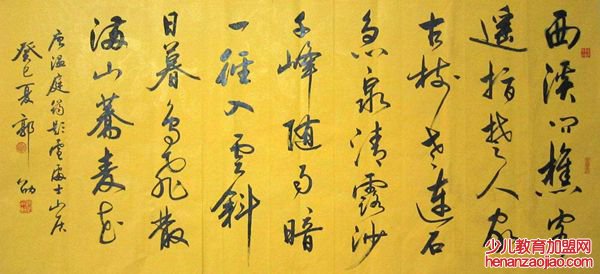 西溪问樵客
遥指楚人家
古树老連石
急泉清露沙
千峰随雨暗
一徑入雲斜
日暮鸟飞散
满山蕎麦花
唐温庭筠题盧處士山居
癸巳夏郭
少儿教育加盟网
henanzaojiao.com